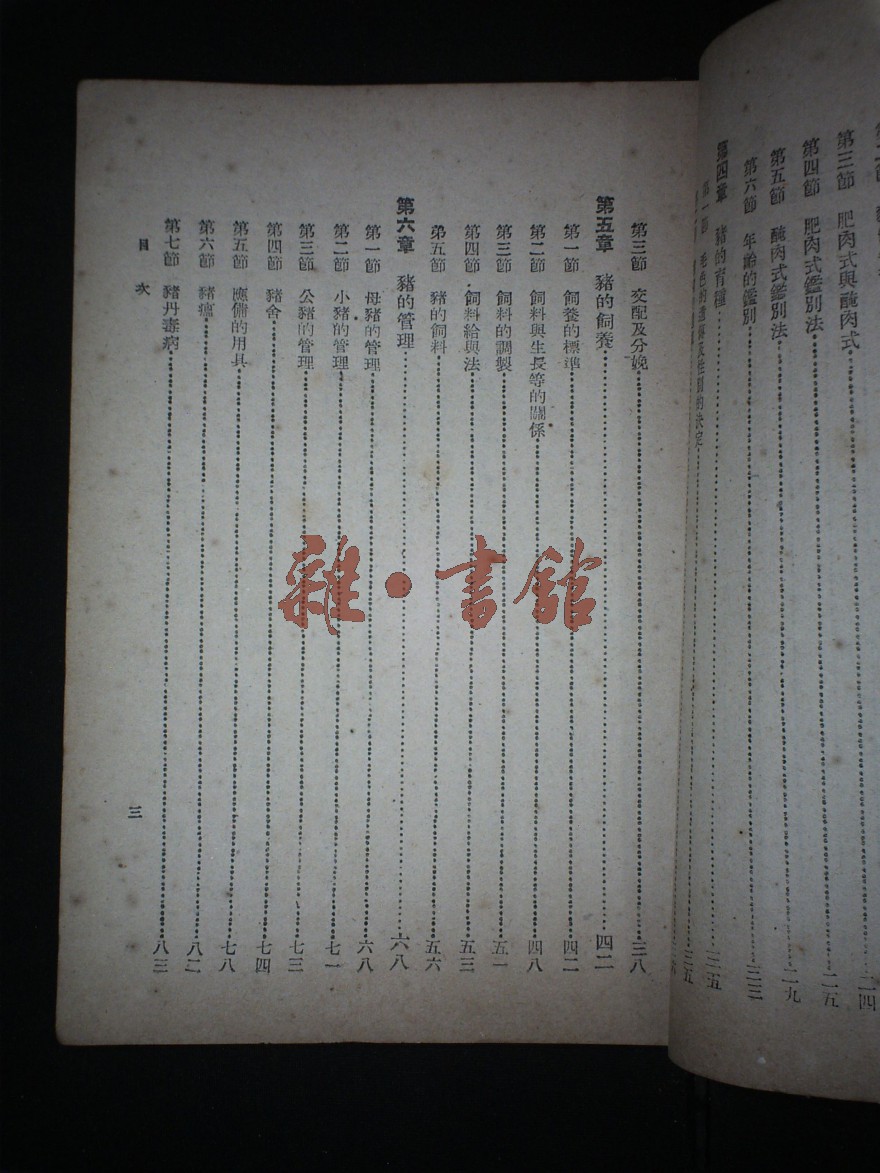 第三節　肥肉式與醃肉式
第四節　肥肉式鑑別法……二四
第五節　醃肉式鑑別法……二九
第六節　年齡的鑑別……三三
第四章　豬的育種……三五
第一節　毛色的遺傳及性別的決定……三五
第三節　交配及分娩……三八
第五章　豬的飼養……四二
第一節　飼養的標準……四二
第二節　飼料與生長等的關係……四八
第三節　飼料的調製……五一
第四節　飼料給與法……五三
第五節　豬的飼料……五六
第六章　豬的管理……六八
第一節　母豬的管理……六八
第二節　小豬的管理……七一
第三節　公豬的管理……七三
第四節　豬舍……七四
第五節　應備的用具……七八
第六節　豬瘟……八二
第七節　豬丹毒病……八三
目次
三
雜·書館